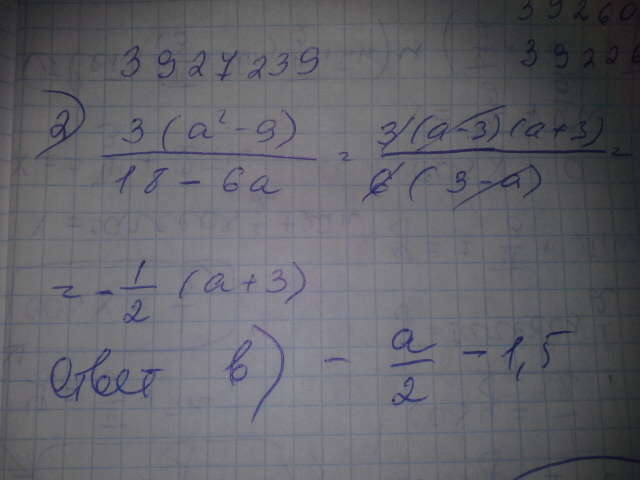 39260
3927239
3922
2) 3(a² - 9) / 18 - 6a = 3(a-3)(a+3) / 6(3-a) =
= - 1/2 (a+3)
Ответ в) - a/2 - 1,5